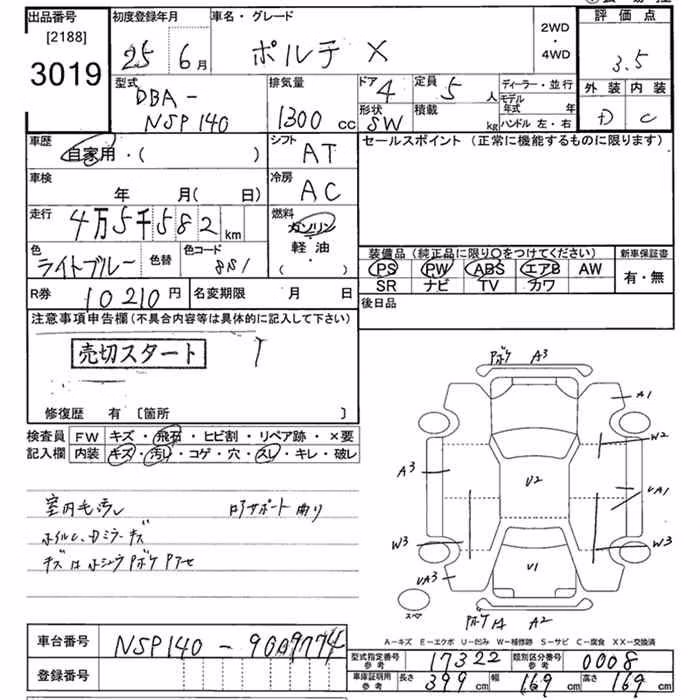 出品番号 初度登録年月 車名・グレード 2WD・4WD 評価点
[2188]
3019 25 6月 ポルテ X 3.5
型式 排気量 ドア 4 定員 5人 ディーラー・並行 外装 内装
DBA- 1300cc 形状 SW 積載 kg モデル年式 年 D C
NSP140 ハンドル 左・右
車歴 自家用・( ) シフト AT セールスポイント (正常に機能するものに限ります)
車検 年 月(日) 冷房 AC
走行 4万5千582km 燃料 ガソリン
軽・油
( ・ )
色 ライトブルー 色替 色コード 8S1
装備品 (純正品に限り○をつけてください) 新車保証書
PS PW ABS エアB AW 有・無
SR ナビ TV カワ
R券 10210円 名変期限 月 日 後日品
注意事項申告欄(不具合内容等は具体的に記入して下さい)
売切スタート
修復歴 有 [箇所 ]
検査員 FW キズ・飛石・ヒビ割・リペア跡・×要
記入欄 内装 キズ・汚レ・コゲ・穴・スレ・キレ・破レ
室内毛汚レ
サポート曲り
ミラーキズ
キズ
A3
A1
W2
A3
U2
UA1
W3
W3
U1
UA3
スペア
A2
A-キズ E-エクボ U-凹み W-補修跡 S-サビ C-腐食 XX-交換済
車台番号 NSP140-9009774
登録番号
型式指定番号 参考 17322 類別区分番号 参考 0008
車庫証明用 参考 長さ 399cm 幅 169cm 高さ 169cm